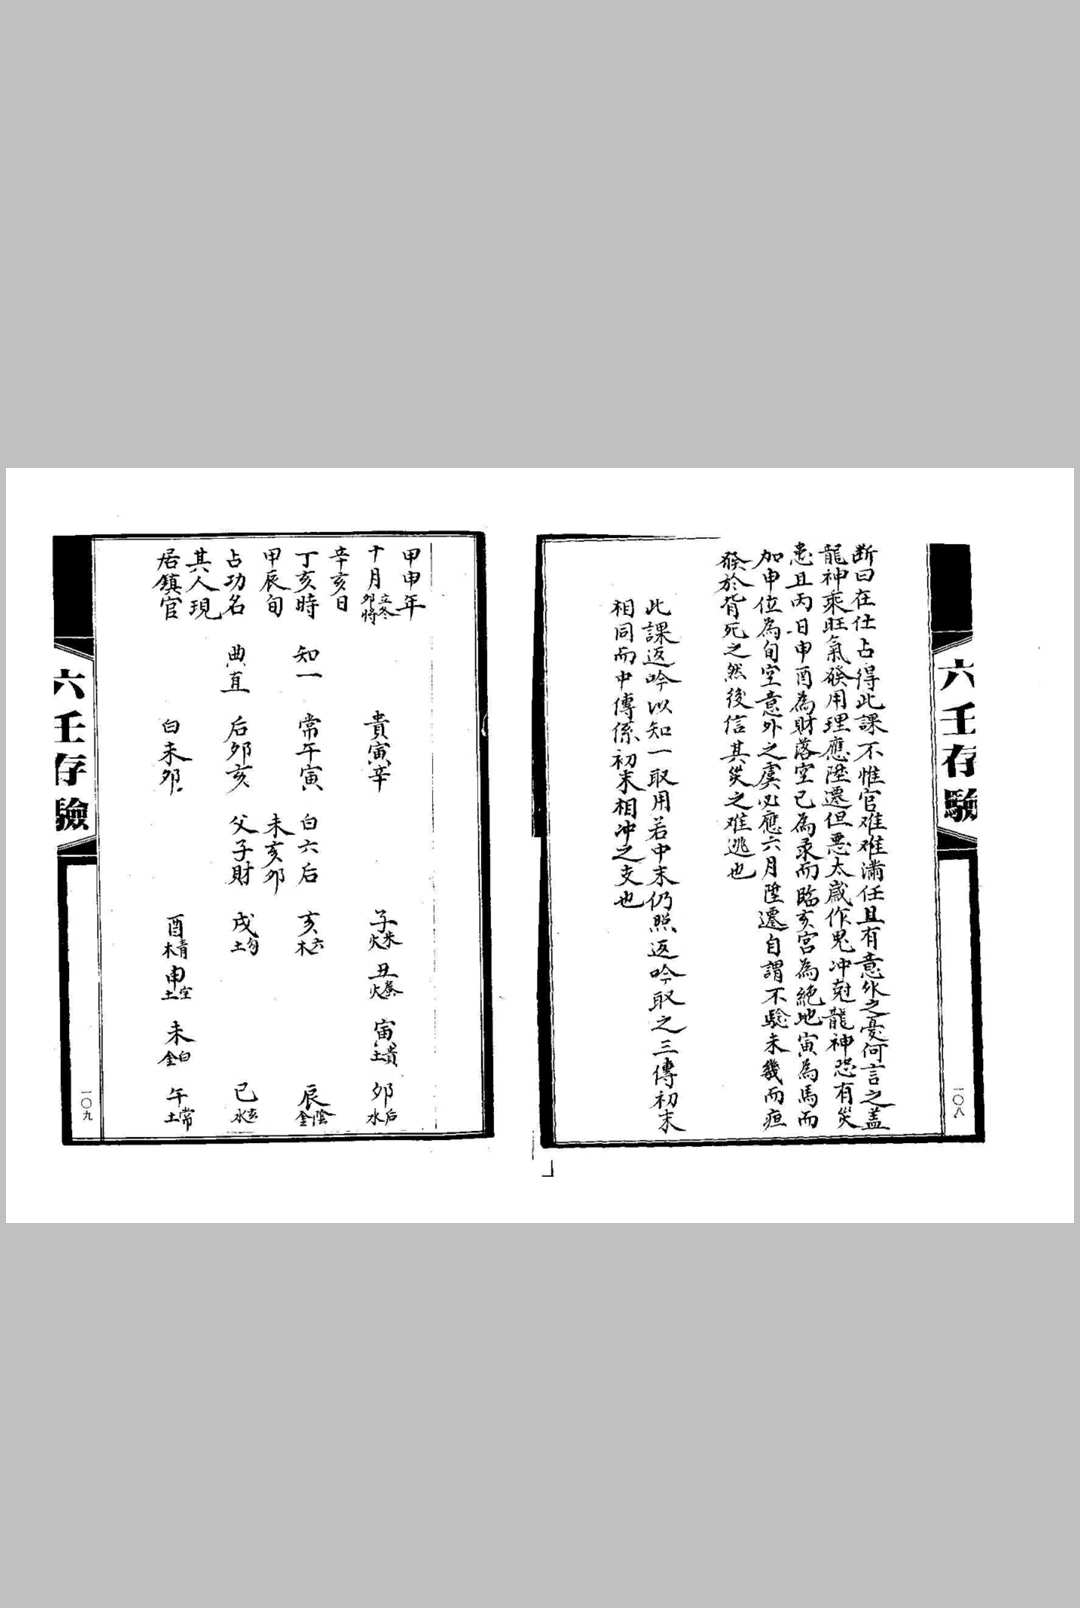 六壬存驗
一〇八
断曰在仕占得此課不惟官难难滿任且有意外之憂何言之盖
龍神乘旺氣發用理應陞遷但悪太歲作鬼冲尅龍神恐有災
患且丙日申酉為財落空已為彔而臨亥宮為絕地寅為馬而
加申位為旬空意外之虞必應六月陞遷自謂不驗未幾而疽
發於背死之然後信其災之难逃也
此課返吟以知一取用若中末仍照返吟取之三傳初末
相同而中傳係初末相冲之支也
甲申年
十月立冬卯將
辛亥日
丁亥時
甲辰旬
占功名
其人現
居鎮官
知一
曲直
貴寅辛
常午寅
后卯亥
白未卯
白六后
未亥卯
父子財
子朱火 丑螣火 寅貴土 卯后水
亥六木 辰陰金
戌勾土 巳玄水
酉青木 申空土 未白金 午常土
六壬存驗
一〇九